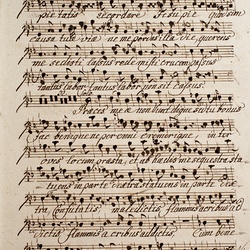 pietatis recordare Jesu pie quod sum
causa tuæ viæ ne me perdas illa die, quærens
me sedisti lassus redemisti crucem passus
tantus labor tantus labor non sit cassus.
Preces meæ non sunt dignæ sed tu bonus
fac benigne ne perenni cremer igne inter
oves locum præsta, et ab hædis me sequestra sta
tuens in parte dextra statuens in parte dex
tra, Confutatis maledictis, flammis acribus ad
dictis, flammis acribus addictis,